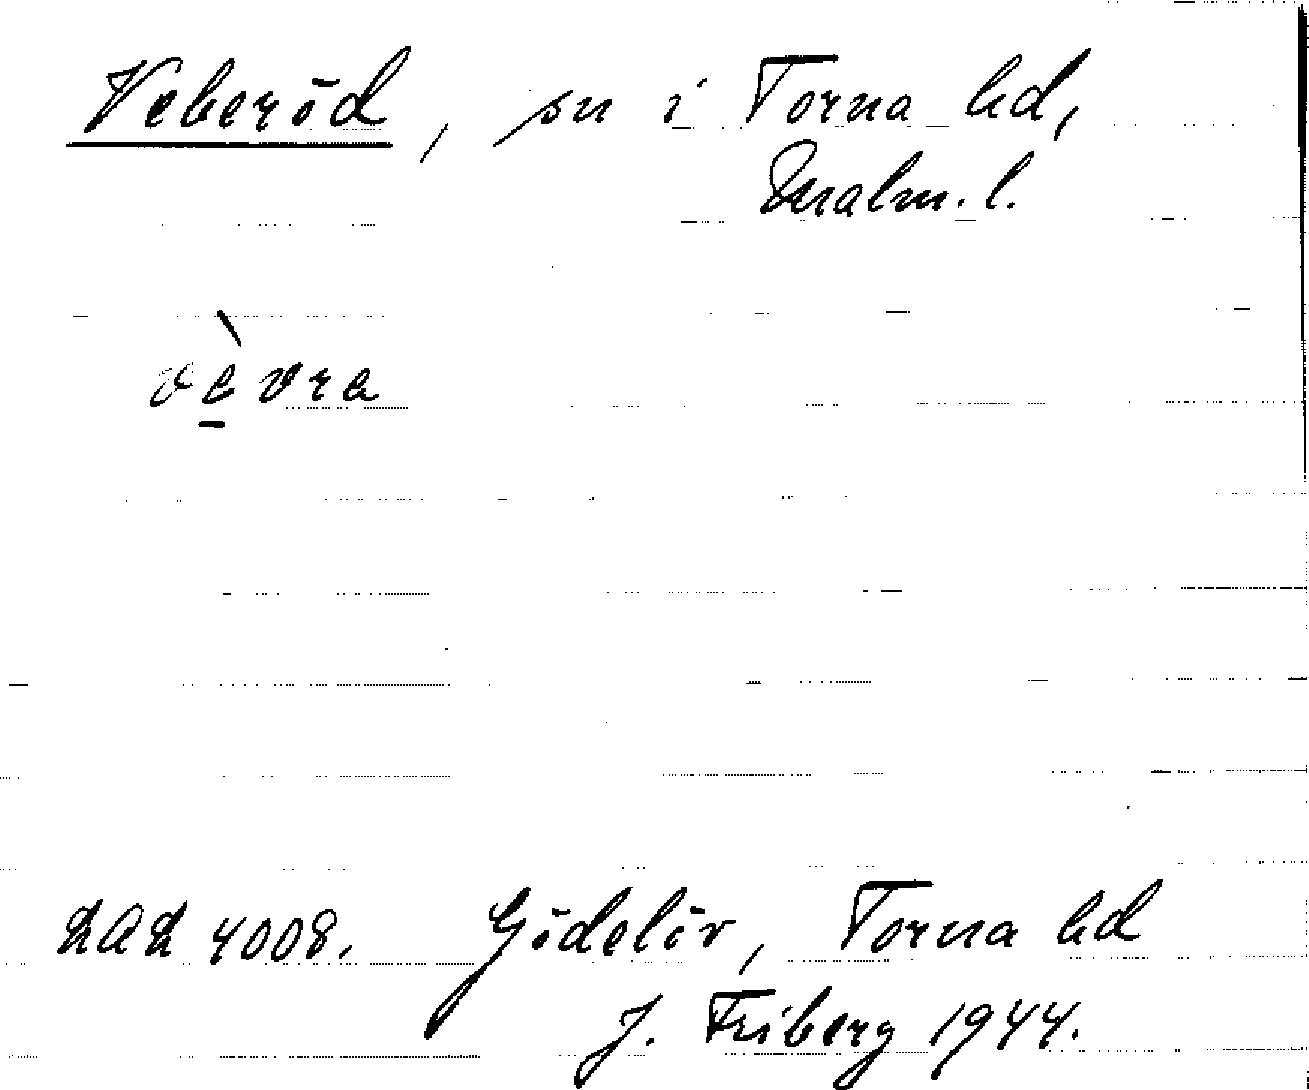 Veberöd, sn i Torna hd,
Malm. l.
vè̱vra
LAL 4008. Gödelöv, Torna hd
J. Friberg 1944.